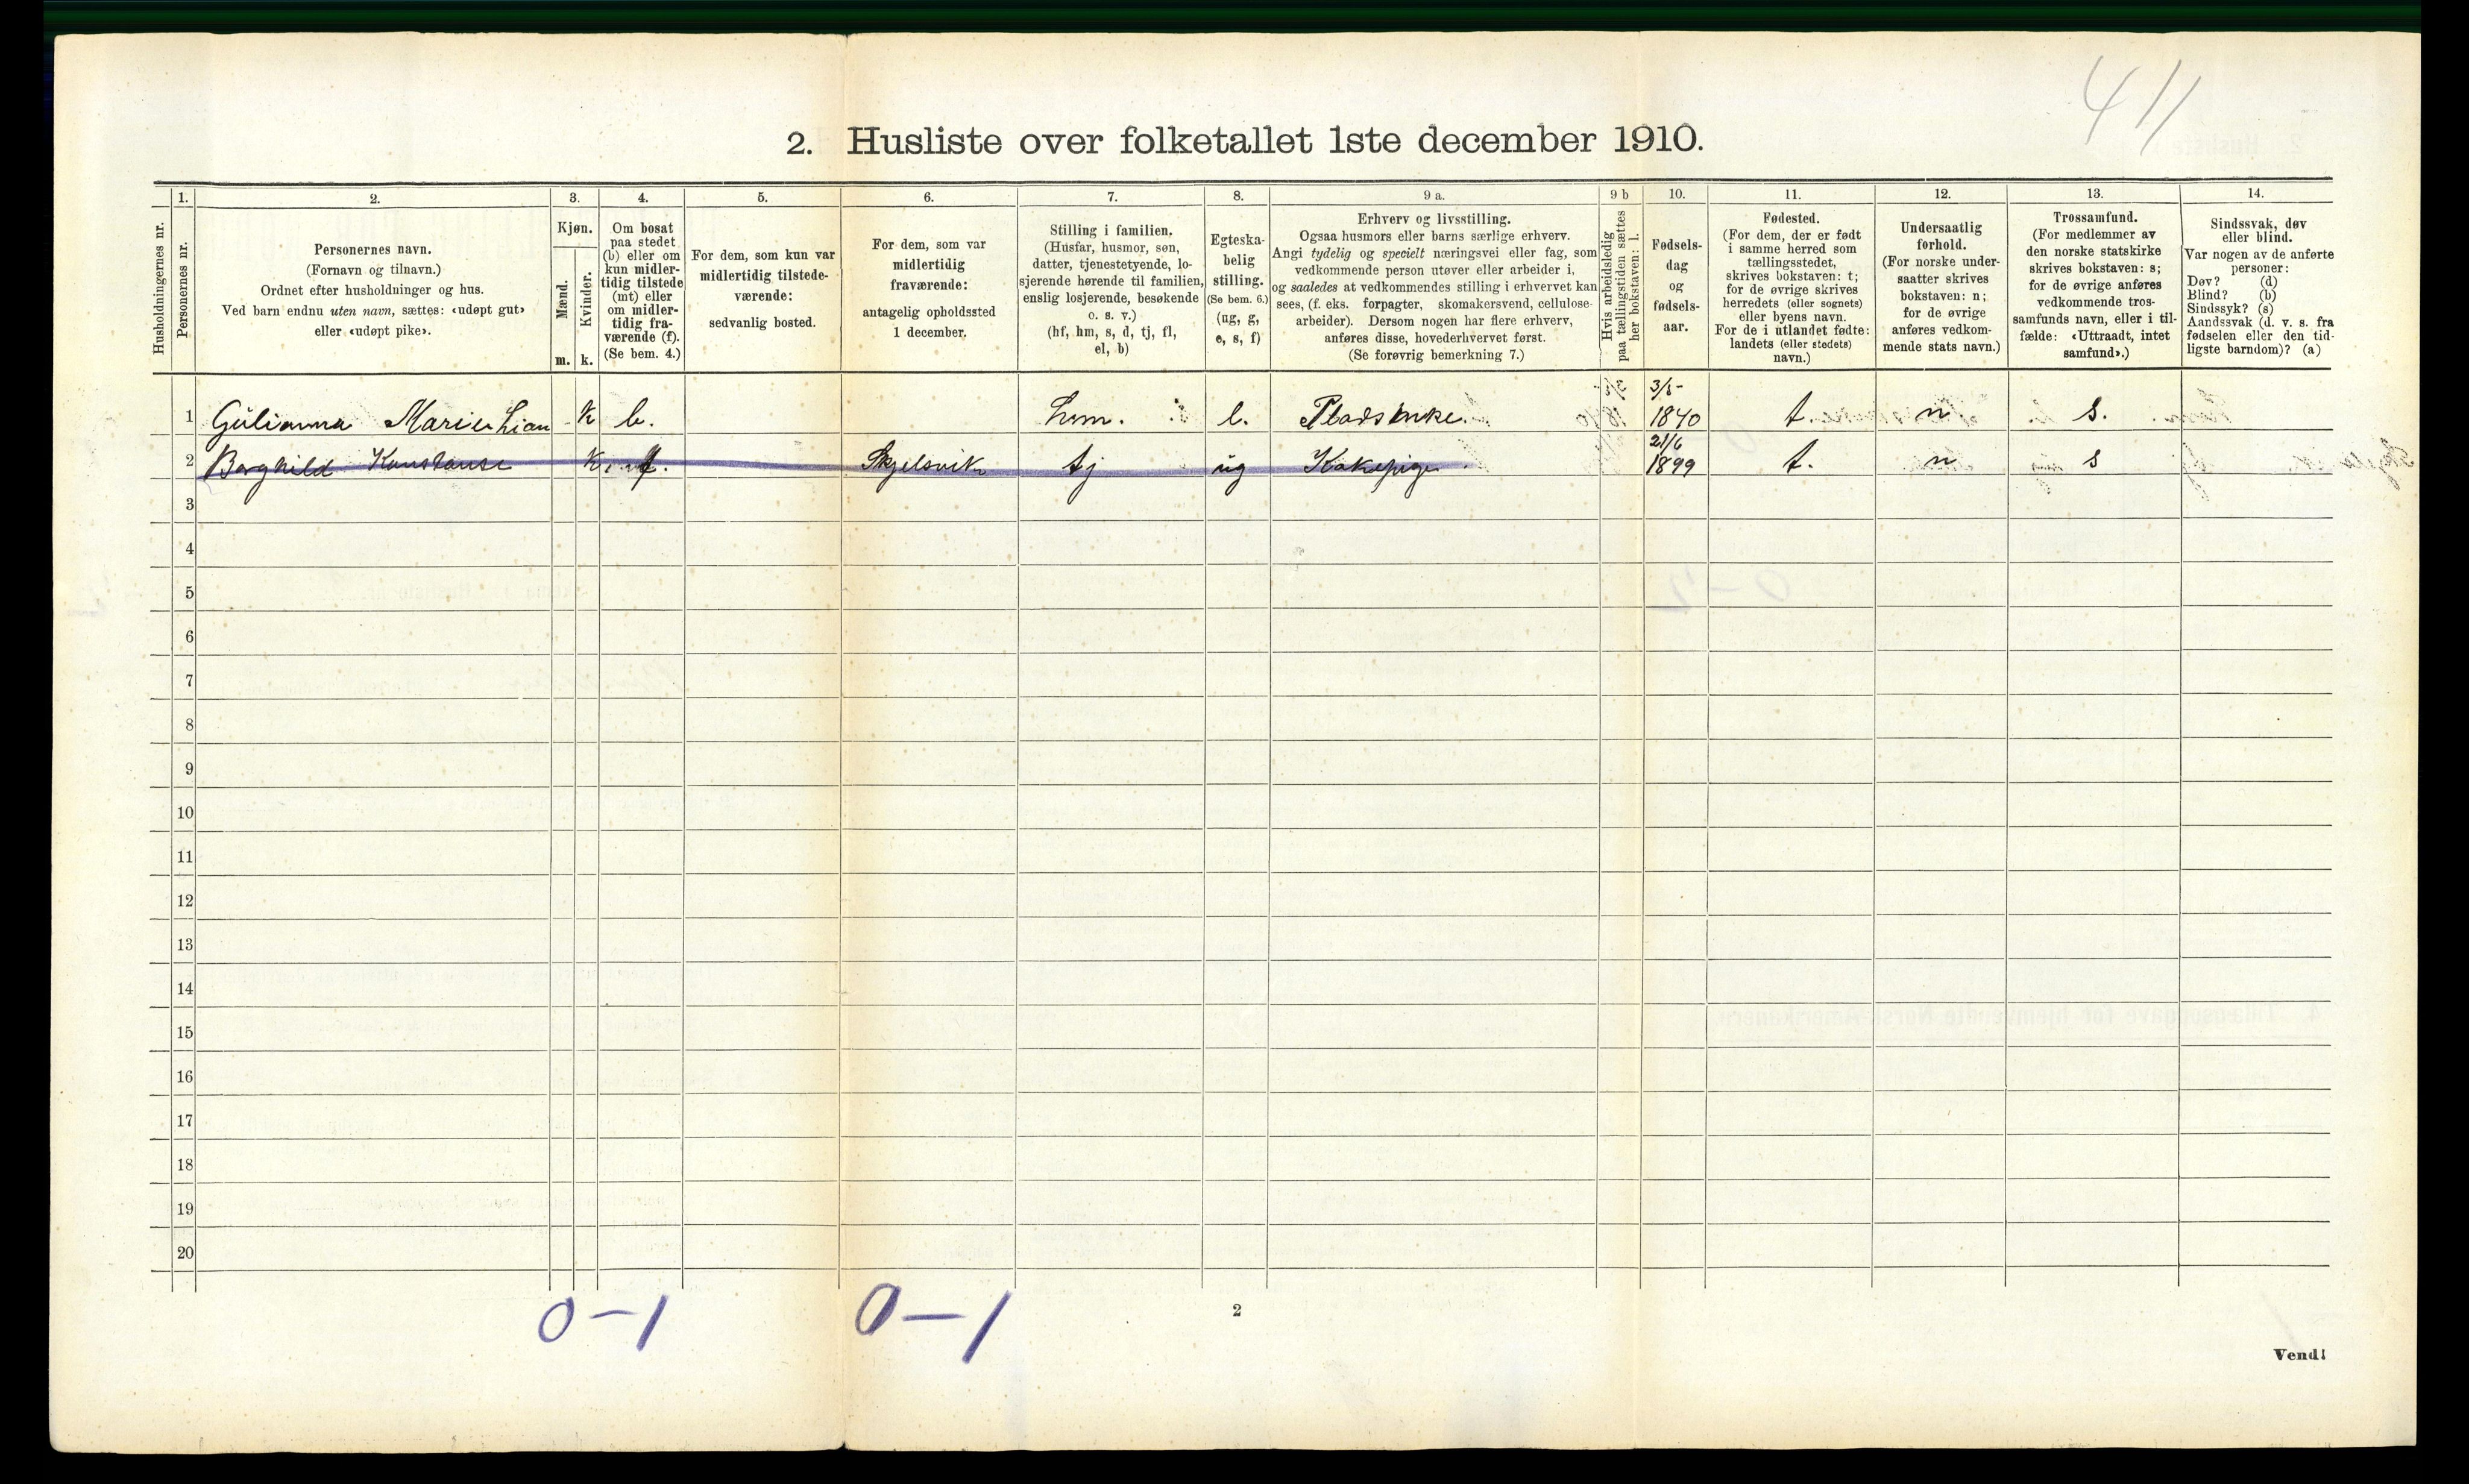 411
2. Husliste over folketallet 1ste december 1910.
Husholdningernes nr.
1. Personernes nr.
2. Personernes navn.
(Fornavn og tilnavn.)
Ordnet efter husholdninger og hus.
Ved barn endnu uten navn, sættes: «udøpt gut»
eller «udøpt pike».
3. Kjøn.
Mænd. m.
Kvinder. k.
4. Om bosat
paa stedet
(b) eller om
kun midler-
tidig tilstede
(mt) eller
om midler-
tidig fra-
værende (f).
(Se bem. 4.)
5. For dem, som kun var
midlertidig tilstede-
værende:
sedvanlig bosted.
6. For dem, som var
midlertidig
fraværende:
antagelig opholdssted
1 december.
7. Stilling i familien.
(Husfar, husmor, søn,
datter, tjenestetyende, lo-
sjerende hørende til familien,
enslig losjerende, besøkende
o. s. v.)
(hf, hm, s, d, tj, fl,
el, b)
8. Egteska-
belig
stilling.
(Se bem. 6.)
(ug, g,
e, s, f)
9 a. Erhverv og livsstilling.
Ogsaa husmors eller barns særlige erhverv.
Angi tydelig og specielt næringsvei eller fag, som
vedkommende person utøver eller arbeider i,
og saaledes at vedkommendes stilling i erhvervet kan
sees, (f. eks. forpagter, skomakersvend, cellulose-
arbeider). Dersom nogen har flere erhverv,
anføres disse, hovederhvervet først.
(Se forøvrig bemerkning 7.)
9 b Hvis arbeidsledig
paa tællingstiden sættes
her bokstaven: l.
10. Fødsels-
dag
og
fødsels-
aar.
11. Fødested.
(For dem, der er født
i samme herred som
tællingsstedet,
skrives bokstaven: t;
for de øvrige skrives
herredets (eller sognets)
eller byens navn.
For de i utlandet fødte:
landets (eller stedets)
navn.)
12. Undersaatlig
forhold.
(For norske under-
saatter skrives
bokstaven: n;
for de øvrige
anføres vedkom-
mende stats navn.)
13. Trossamfund.
(For medlemmer av
den norske statskirke
skrives bokstaven: s;
for de øvrige anføres
vedkommende tros-
samfunds navn, eller i til-
fælde: «Uttraadt, intet
samfund».)
14. Sindssvak, døv
eller blind.
Var nogen av de anførte
personer:
Døv? (d)
Blind? (b)
Sindssyk? (s)
Aandssvak (d. v. s. fra
fødselen eller den tid-
ligste barndom)? (a)
1 Gulianna Marie Lian K b. hm. e. Pladsenke. 3/5- 1840 t. n s.
2 Borghild Konstanse K f. Skjelsvik tj ug Kokepige 21/6 1899 t. n s
3
4
5
6
7
8
9
10
11
12
13
14
15
16
17
18
19
20
0-1 0-1
2
Vend!